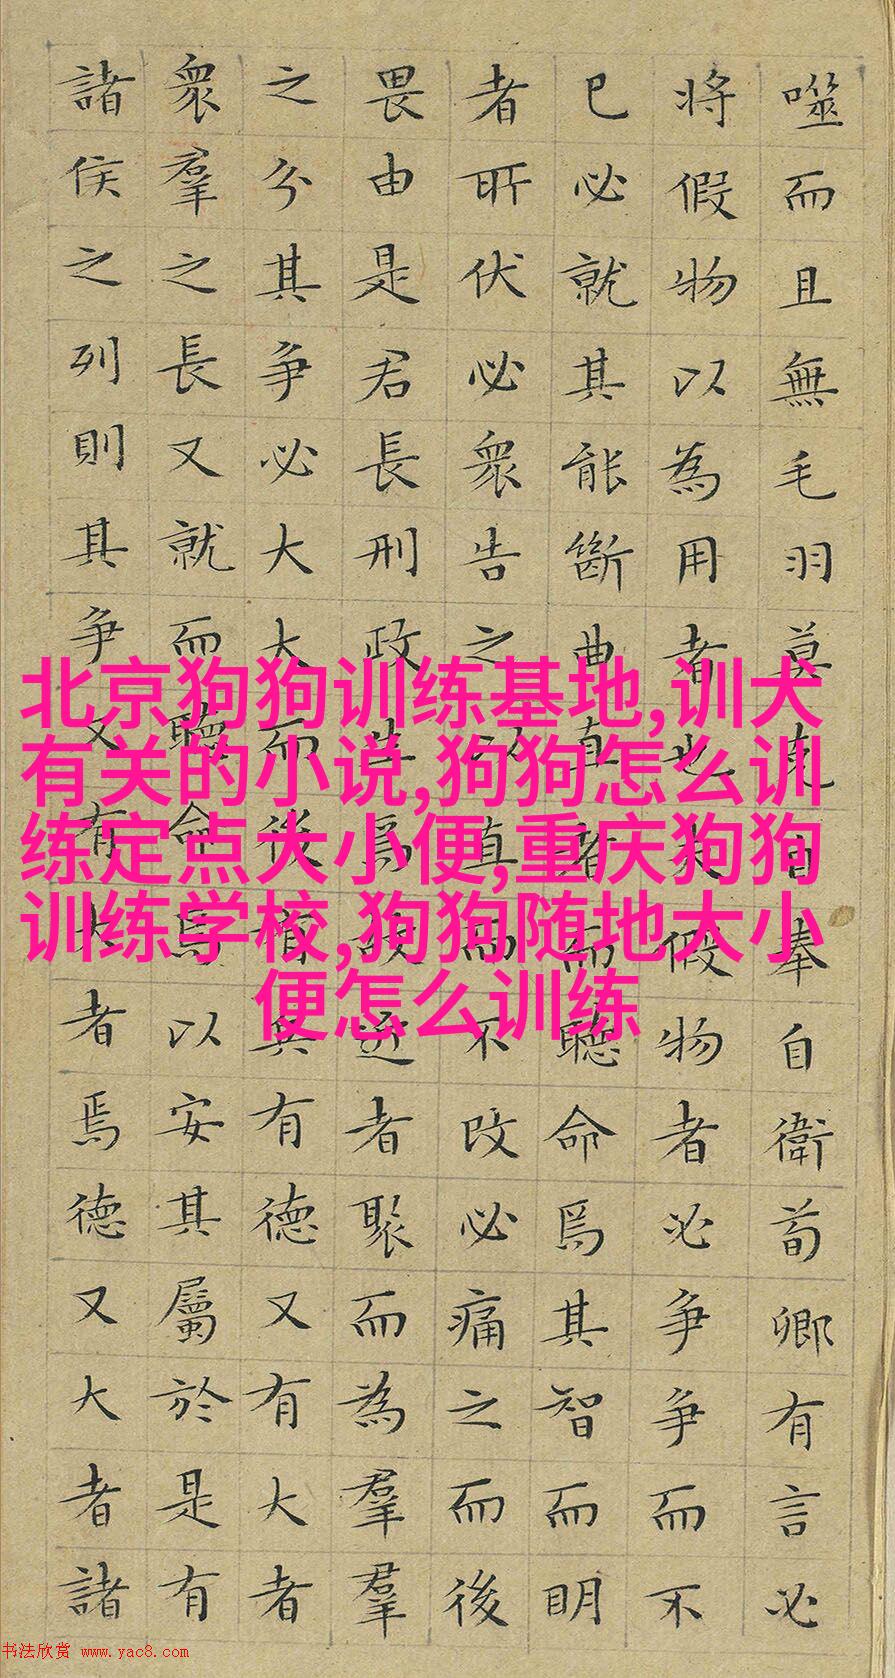 噬而且無毛羽莫克自奉自衛荀卿有言必
將假物以為用者也夫假物者必争争而不
已必就其能斷曲直者而聽命焉其智而明
者所伏必衆告之以直而不改必痛之而後
畏由是君長刑政生焉故近者聚而為羣羣
之分其争必大大而後有兵有德又有大者
衆羣之長又就而聽命焉以安其屬於是有
諸侯之列則其争又有大者焉德又大者諸
北京狗狗训练基地,训犬
有关的小说,狗狗怎么训
练定点大小便,重庆狗狗
训练学校,狗狗随地大小
便怎么训练
书法欣赏 www.yac8.com